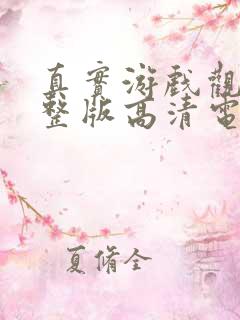 真實游戲觀
整版高清電
夏脩全